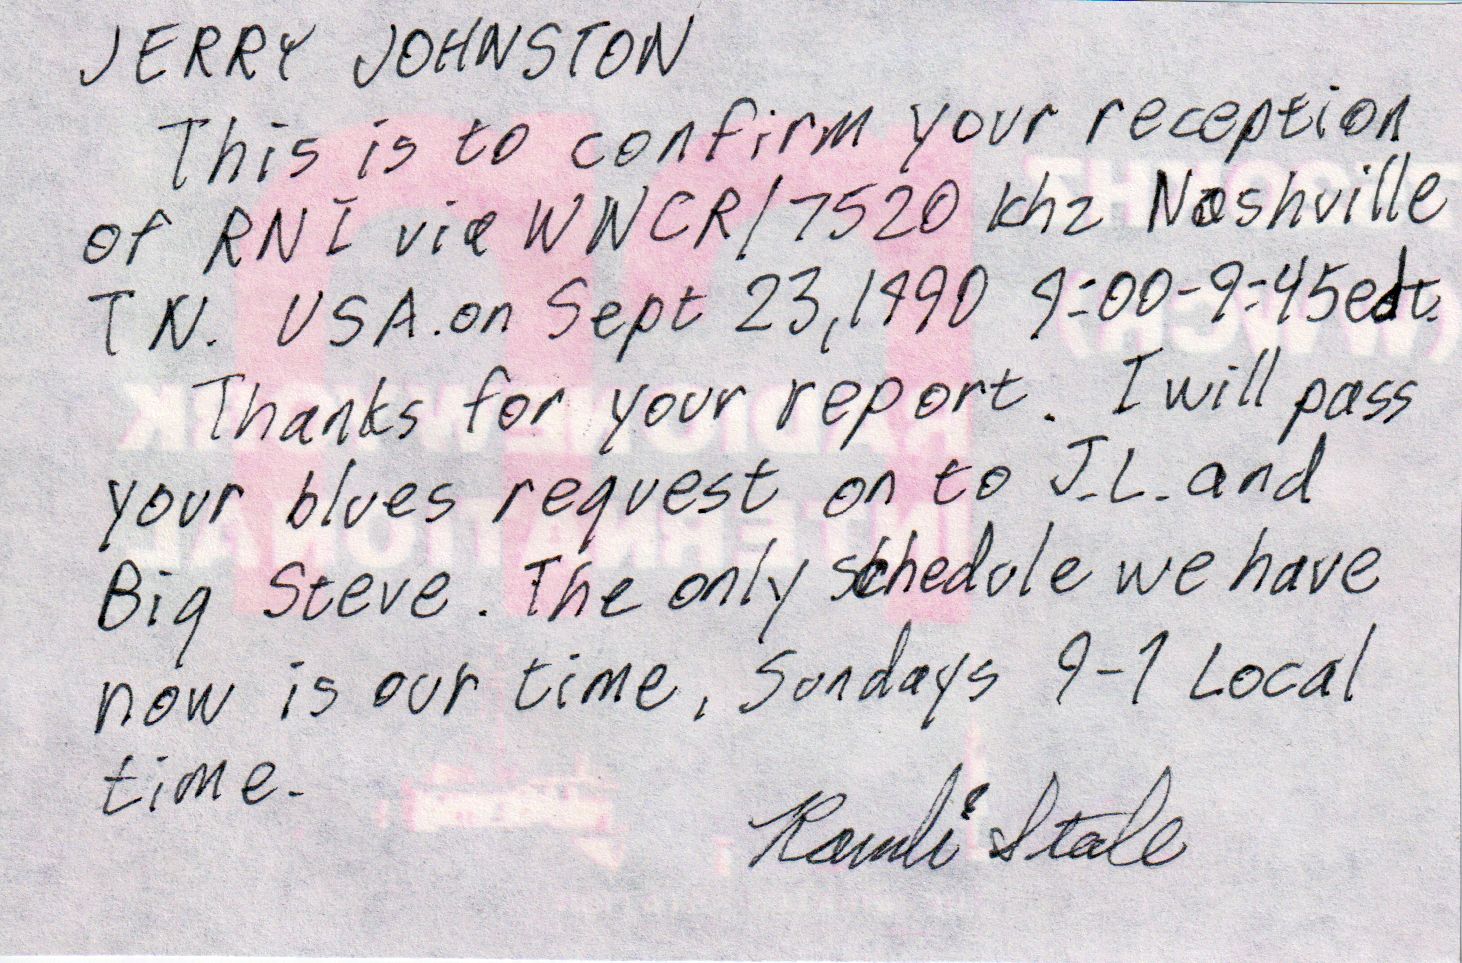 JERRY JOHNSTON
This is to confirm your reception
of RNI via WNCR/7520 khz Nashville
TN. USA. on Sept 23, 1990 9:00-9:45edt.
Thanks for your report. I will pass
your blues request on to J.L. and
Big Steve. The only schedule we have
now is our time, Sundays 9-1 Local
time.
RADIO NEW YORK
INTERNATIONAL